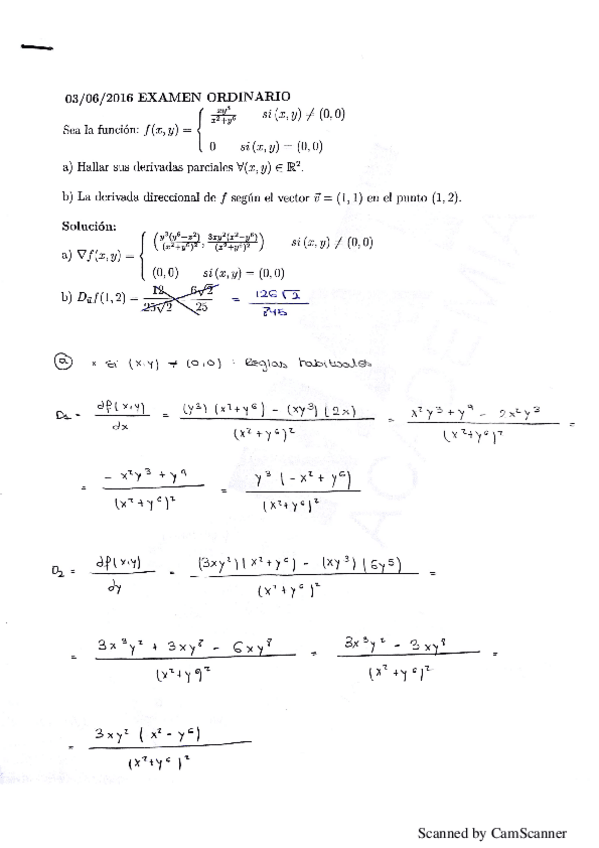 03/06/2016 EXAMEN ORDINARIO
Sea la función: f(x, y) = { xy³/(x²+y⁶) si (x, y) ≠ (0, 0)
0 si (x, y) = (0, 0)
a) Hallar sus derivadas parciales ∀(x, y) ∈ ℝ².
b) La derivada direccional de f según el vector v⃗ = (1, 1) en el punto (1, 2).
Solución:
a) ∇f(x, y) = { (y³(y⁶−x²)/(x²+y⁶)², 3xy²(x²−y⁶)/(x²+y⁶)²) si (x, y) ≠ (0, 0)
(0, 0) si (x, y) = (0, 0)
b) D f(1, 2) = 12/25√2 6√2/25 = 126√2/845
a * si (x,y) ≠ (0,0) : Reglas habituales
D₁ = df(x,y)/dx = (y³)(x²+y⁶) − (xy³)(2x)/(x²+y⁶)² = x²y³+y⁹ − 2x²y³/(x²+y⁶)² =
= −x²y³+y⁹/(x²+y⁶)² = y³(−x²+y⁶)/(x²+y⁶)²
D₂ = df(x,y)/dy = (3xy²)(x²+y⁶) − (xy³)(6y⁵)/(x²+y⁶)² =
= 3x³y² + 3xy⁸ − 6xy⁸/(x²+y⁶)² = 3x³y² − 3xy⁸/(x²+y⁶)² =
= 3xy²(x²−y⁶)/(x²+y⁶)²
Scanned by CamScanner